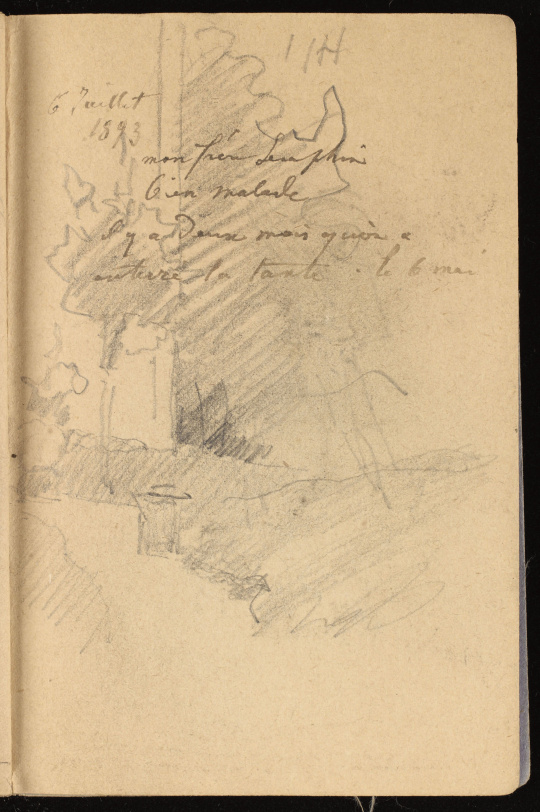 6 Juillet
1893
mon frère Seraphin
bien malade
il y a Deux mois qu'on a
enterré la tante. le 6 mai